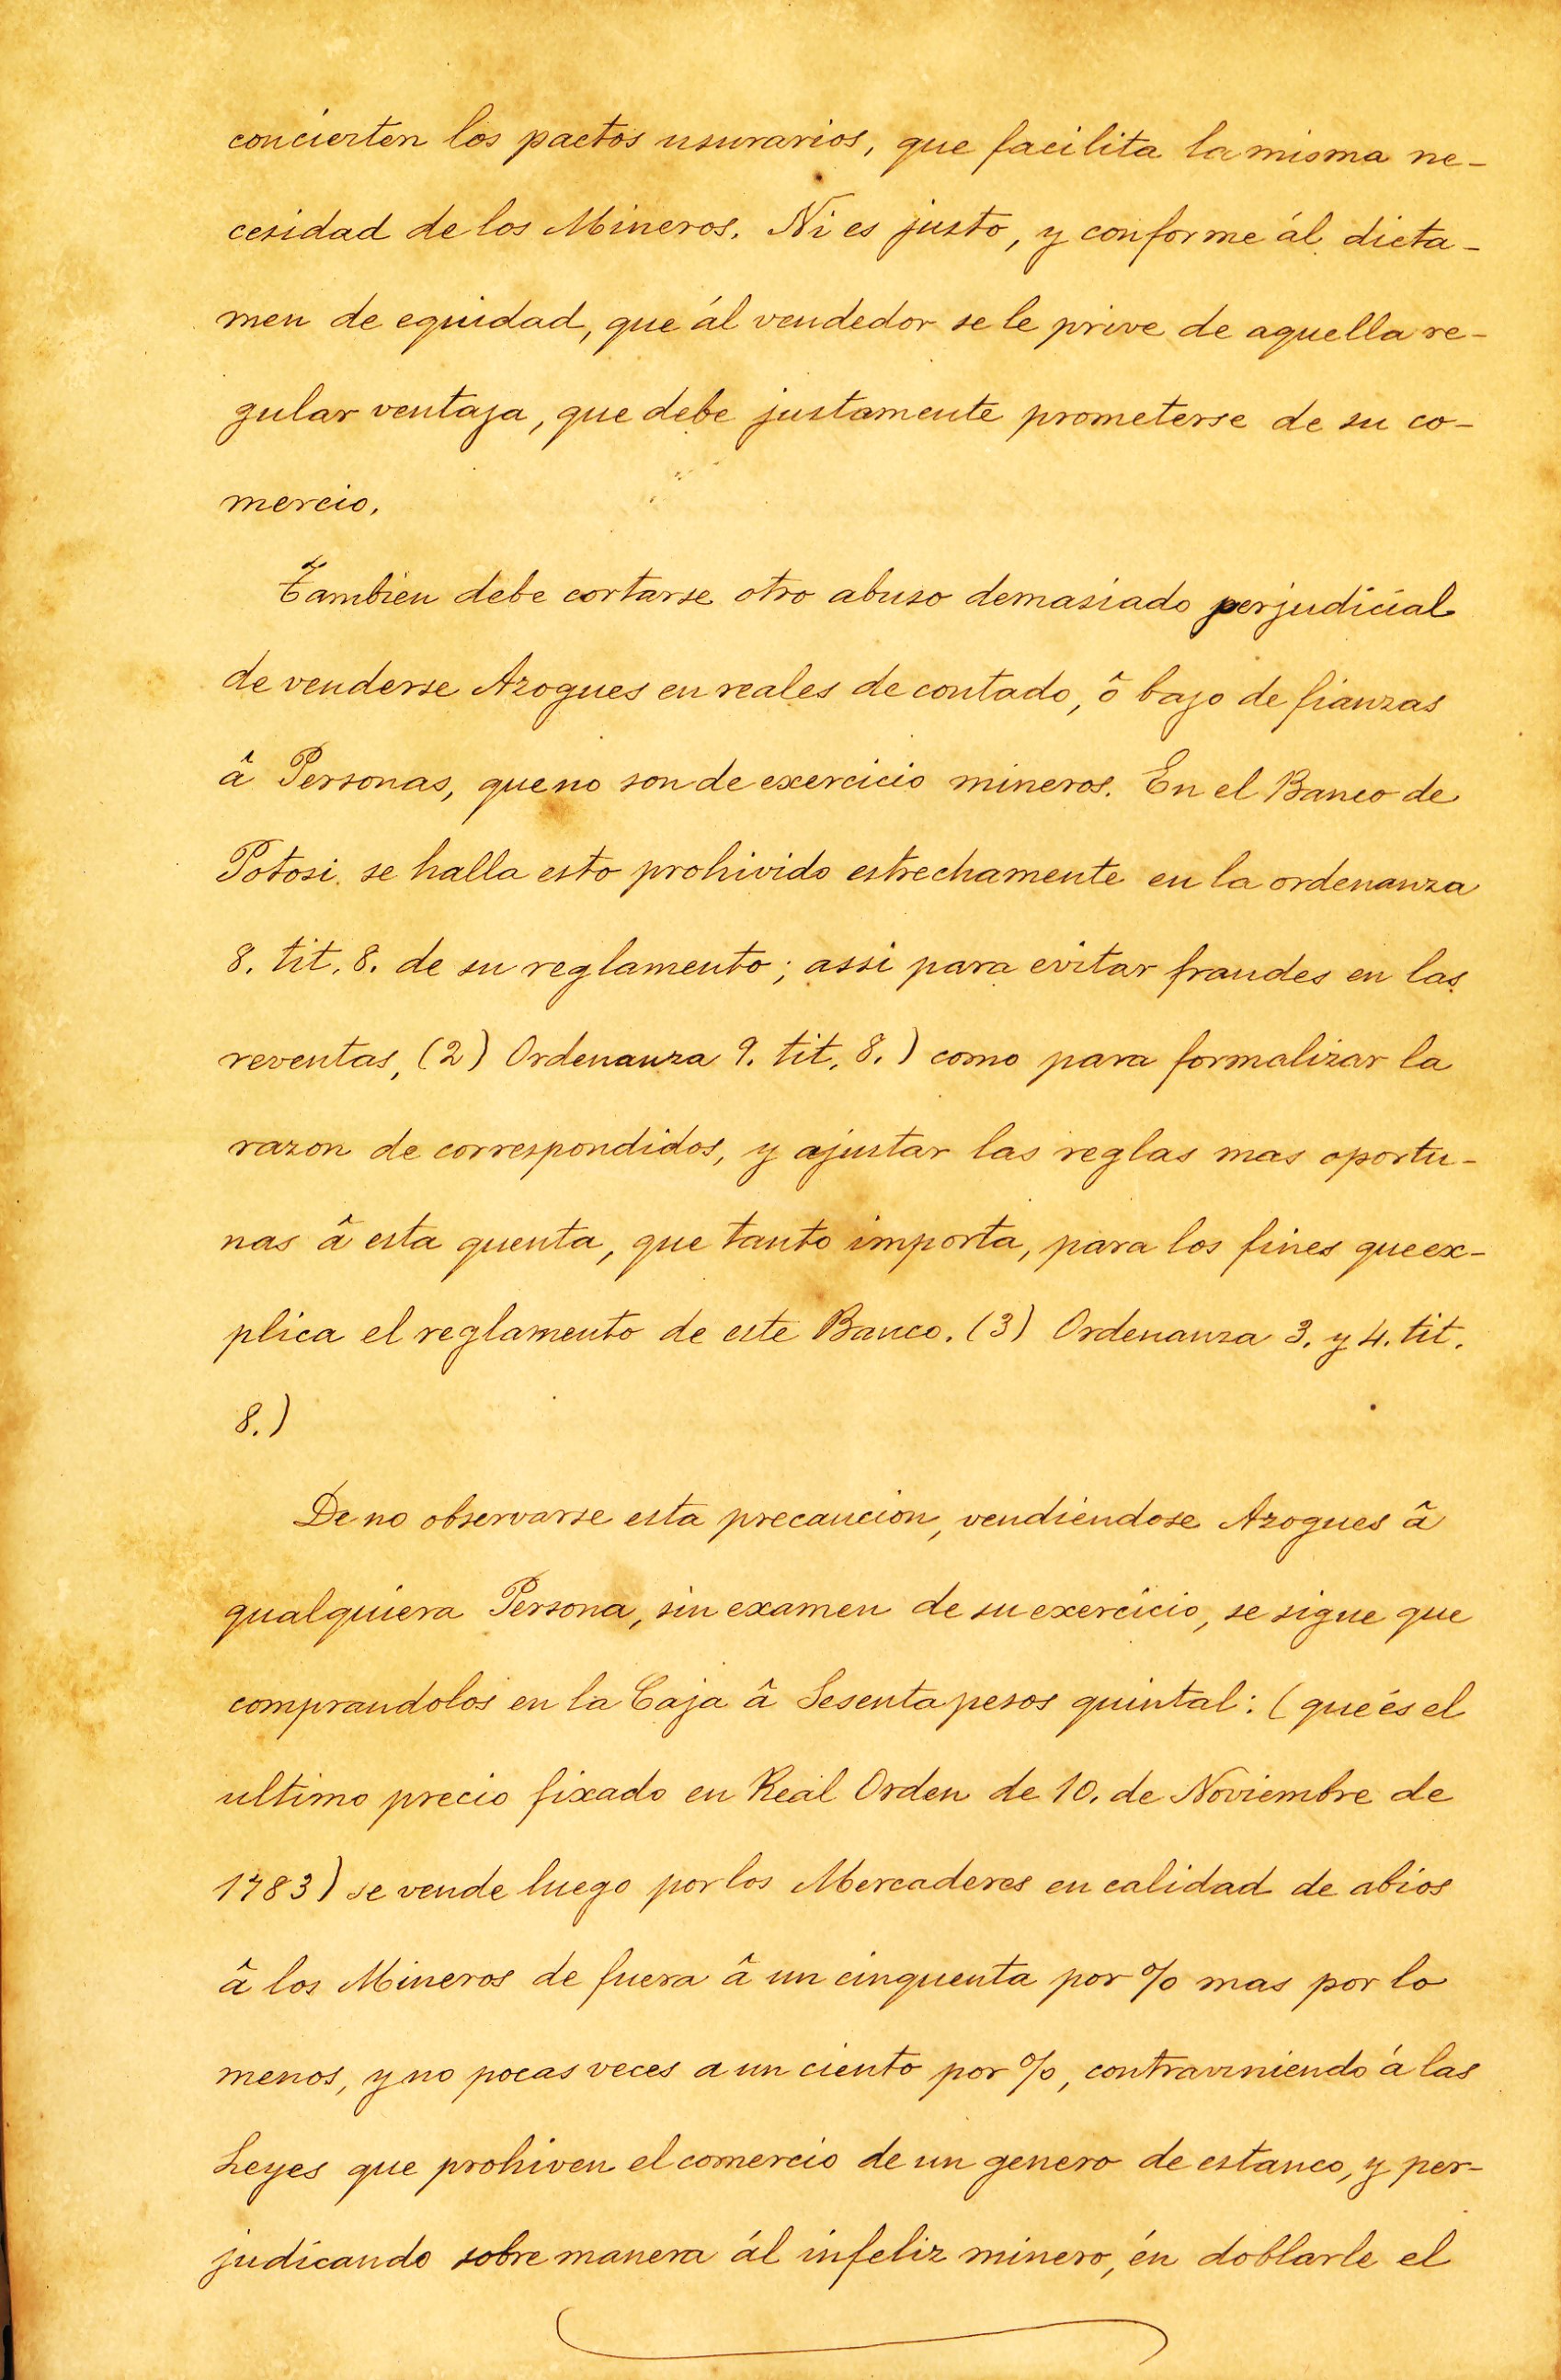 concierten los pactos usurarios, que facilita la misma ne-
cesidad de los Mineros. Ni es justo, y conforme ál dicta-
men de equidad, que ál vendedor se le prive de aquella re-
gular ventaja, que debe justamente prometerse de su co-
mercio.
Tambien debe cortarse otro abuso demasiado perjudicial
de venderse Azogues en reales de contado, ô bajo de fianzas
â Personas, que no son de exercicio mineros. En el Banco de
Potosi se halla esto prohivido estrechamente en la ordenanza
8. tit. 8. de su reglamento; assi para evitar fraudes en las
reventas, (2) Ordenanza 9. tit. 8.) como para formalizar la
razon de correspondidos, y ajustar las reglas mas oportu-
nas â esta quenta, que tanto importa, para los fines que ex-
plica el reglamento de este Banco. (3) Ordenanza 3. y 4. tit.
8.)
De no observarse esta precaucion, vendiendose Azogues â
qualquiera Persona, sin examen de su exercicio, se sigue que
comprandolos en la Caja â Sesenta pesos quintal: (que és el
ultimo precio fixado en Real Orden de 10. de Noviembre de
1783) se vende luego por los Mercaderes en calidad de abios
â los Mineros de fuera â un cinquenta por % mas por lo
menos, y no pocas veces a un ciento por %, contraviniendo á las
Leyes que prohiven el comercio de un genero de estanco, y per-
judicando sobre manera ál infeliz minero, én doblarle el